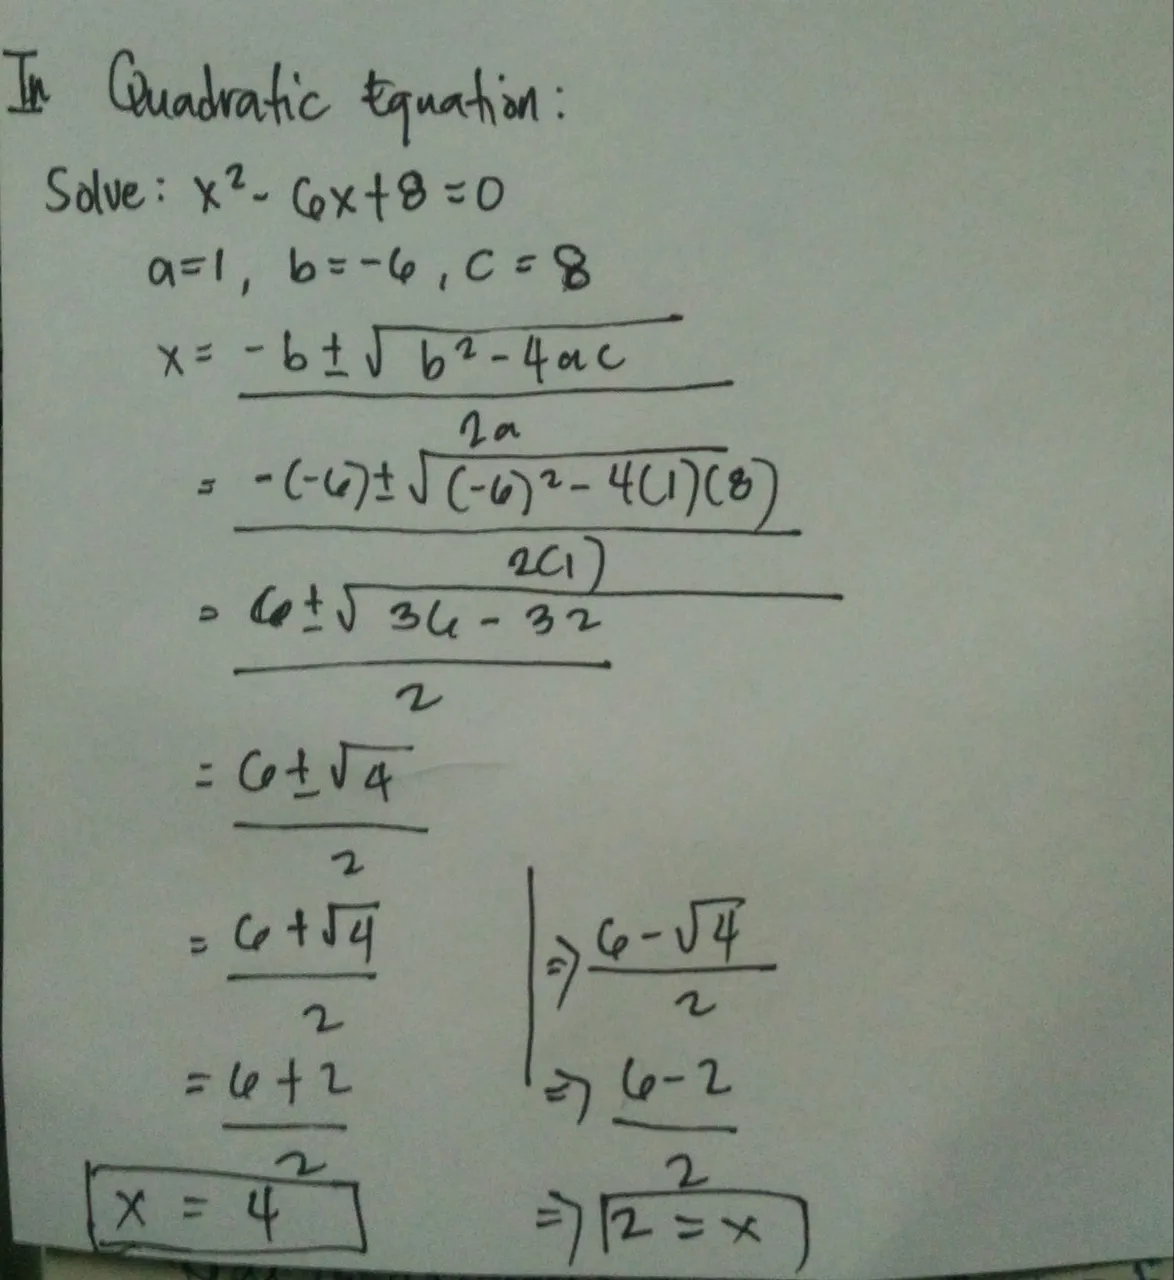 In Quadratic Equation:
Solve: x² - 6x+8=0
a=1, b=-6, c=8
x = -b ± √b² - 4ac
2a
= -(-6) ± √(-6)² - 4(1)(8)
2(1)
= 6 ± √36 - 32
2
= 6 ± √4
2
= 6 + √4 | ⇒ 6 - √4
2 2
= 6 + 2 ⇒ 6 - 2
2 2
x = 4 ⇒ 2 = x